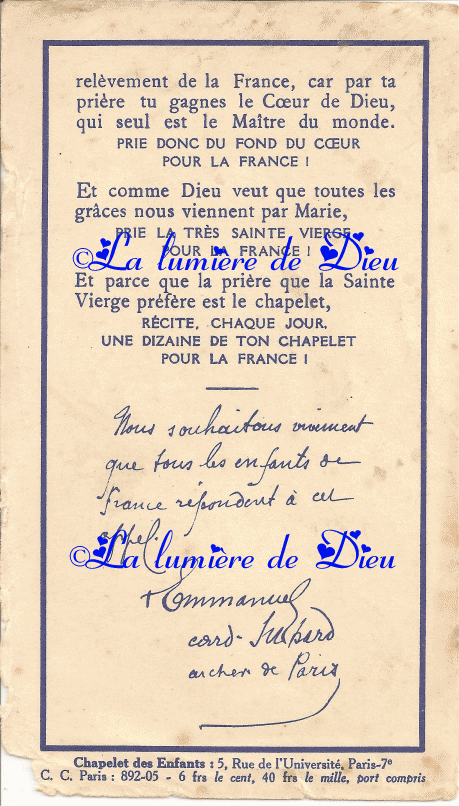 relèvement de la France, car par ta
prière tu gagnes le Cœur de Dieu,
qui seul est le Maître du monde.
PRIE DONC DU FOND DU CŒUR
POUR LA FRANCE !
Et comme Dieu veut que toutes les
grâces nous viennent par Marie,
PRIE LA TRÈS SAINTE VIERGE
POUR LA FRANCE !
©La lumière de Dieu
Et parce que la prière que la Sainte
Vierge préfère est le chapelet,
RÉCITE, CHAQUE JOUR,
UNE DIZAINE DE TON CHAPELET
POUR LA FRANCE !
Nous souhaitons vivement
que tous les enfants de
France répondent à cet
appel.
©La lumière de Dieu
+ Emmanuel
card. Suhard
archev. de Paris
Chapelet des Enfants : 5, Rue de l'Université, Paris-7e
C. C. Paris : 892-05 - 6 frs le cent, 40 frs le mille, port compris